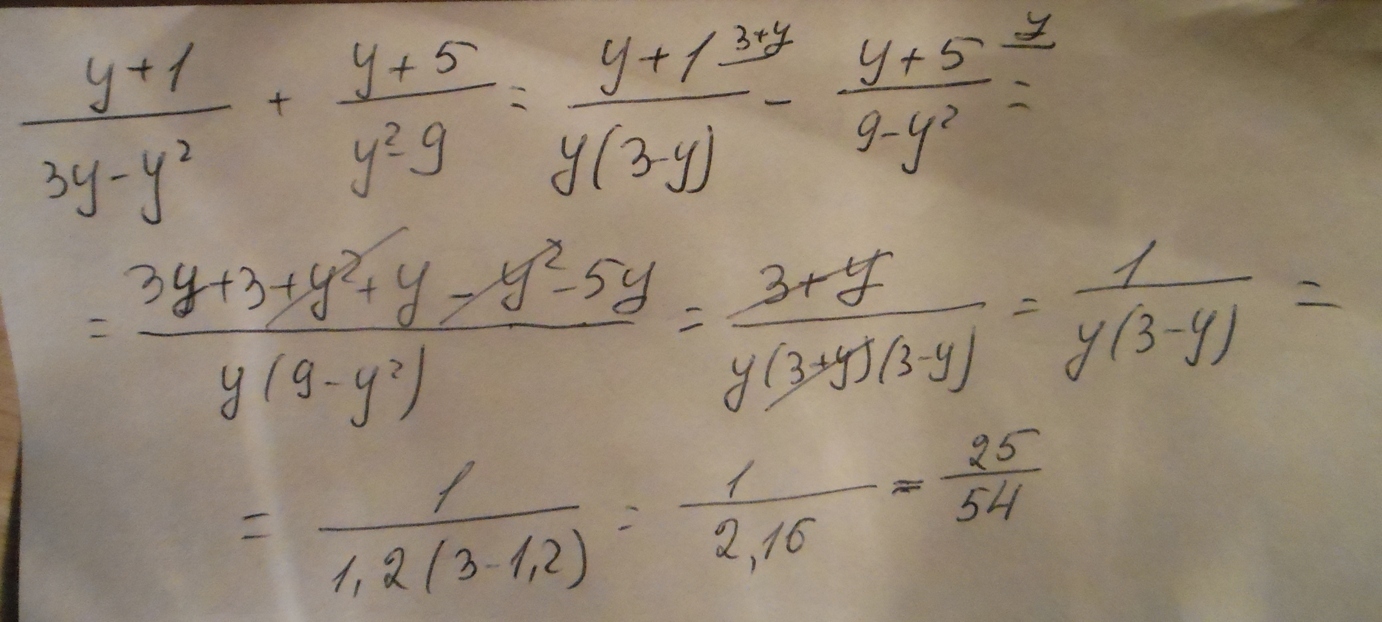 (y+1)/(3y-y²) + (y+5)/(y²-9) = (y+1)/(y(3-y)) 3+y - (y+5)/(9-y²) y =
= (3y+3+y²+y-y²-5y)/(y(9-y²)) = (3+y)/(y(3+y)(3-y)) = 1/(y(3-y)) =
= 1/(1,2(3-1,2)) = 1/2,16 = 25/54